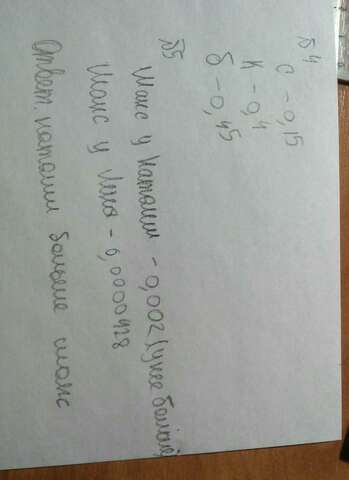 №4
С - 0,15
К - 0,4
Б - 0,45
№5
Шанс у Наталии - 0,002 (у нее больше)
Шанс у - 0,0000428
Ответ. Наталии больше шанс